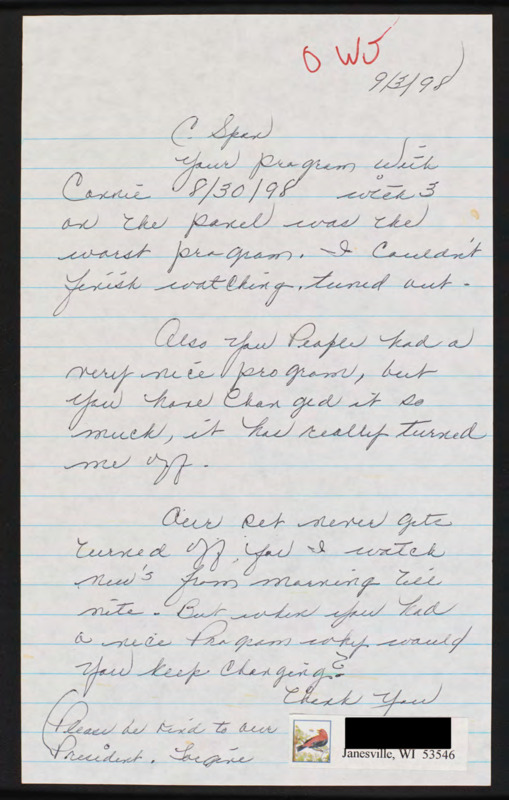 O WJ
9/3/98
C. Span
Your program with
Connie 8/30/98 with 3
on the panel was the
worst program. I Couldn't
finish watching, tuned out.
Also you People had a
very nice program, but
you have Changed it so
much, it has really turned
me off.
Our set never gets
turned off, you I watch
new's from morning till
nite. But when you had
a nice Program why would
you keep changing?
Thank You
Please be kind to our
President. Forgive
Janesville, WI 53546